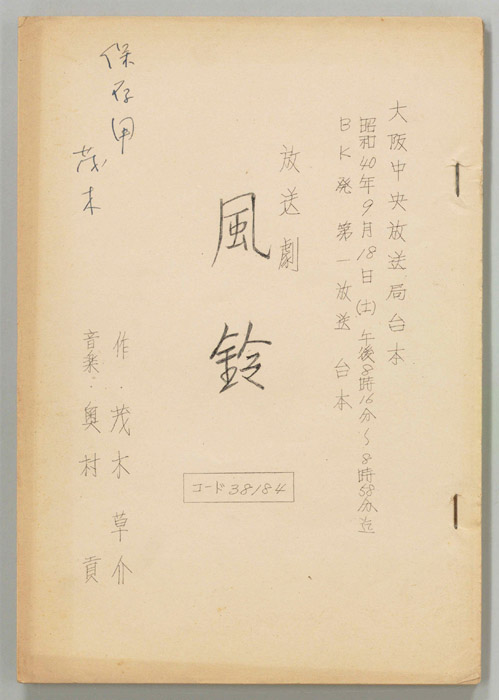 大阪中央放送局台本
昭和40年9月18日(土)午後8時16分〜8時58分迄
BK発 第一放送 台本
放送劇
風鈴
コード38184
作・茂木草介
音楽・奥村 貢
保存用
茂木